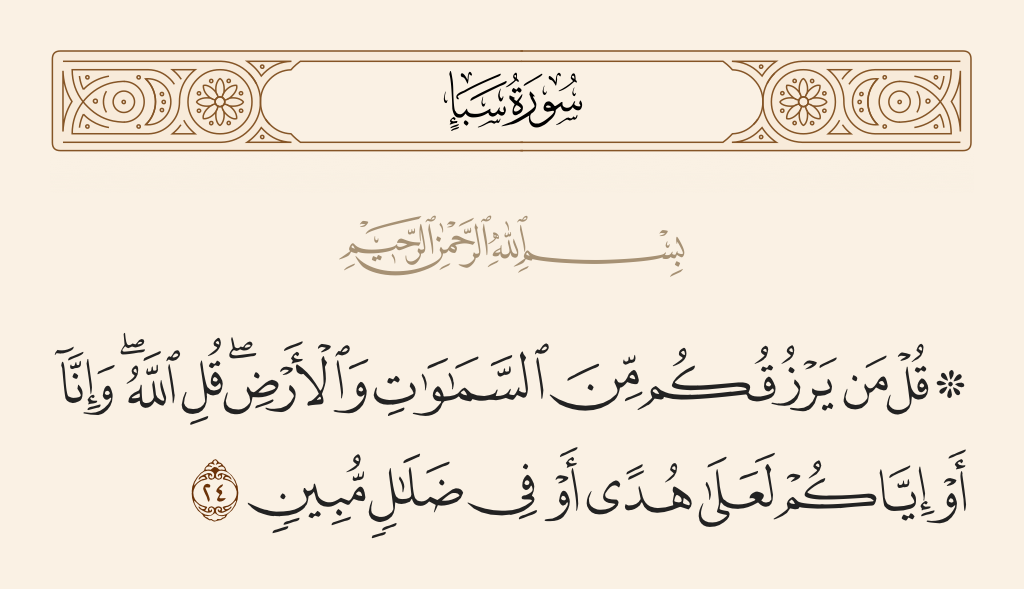 سُورَةُ سَبَإٍ
بِسْمِ ٱللَّهِ ٱلرَّحْمَٰنِ ٱلرَّحِيمِ
۞ قُلْ مَن يَرْزُقُكُم مِّنَ ٱلسَّمَٰوَٰتِ وَٱلْأَرْضِ ۖ قُلِ ٱللَّهُ ۖ وَإِنَّآ
أَوْ إِيَّاكُمْ لَعَلَىٰ هُدًى أَوْ فِى ضَلَٰلٍ مُّبِينٍ ٢٤